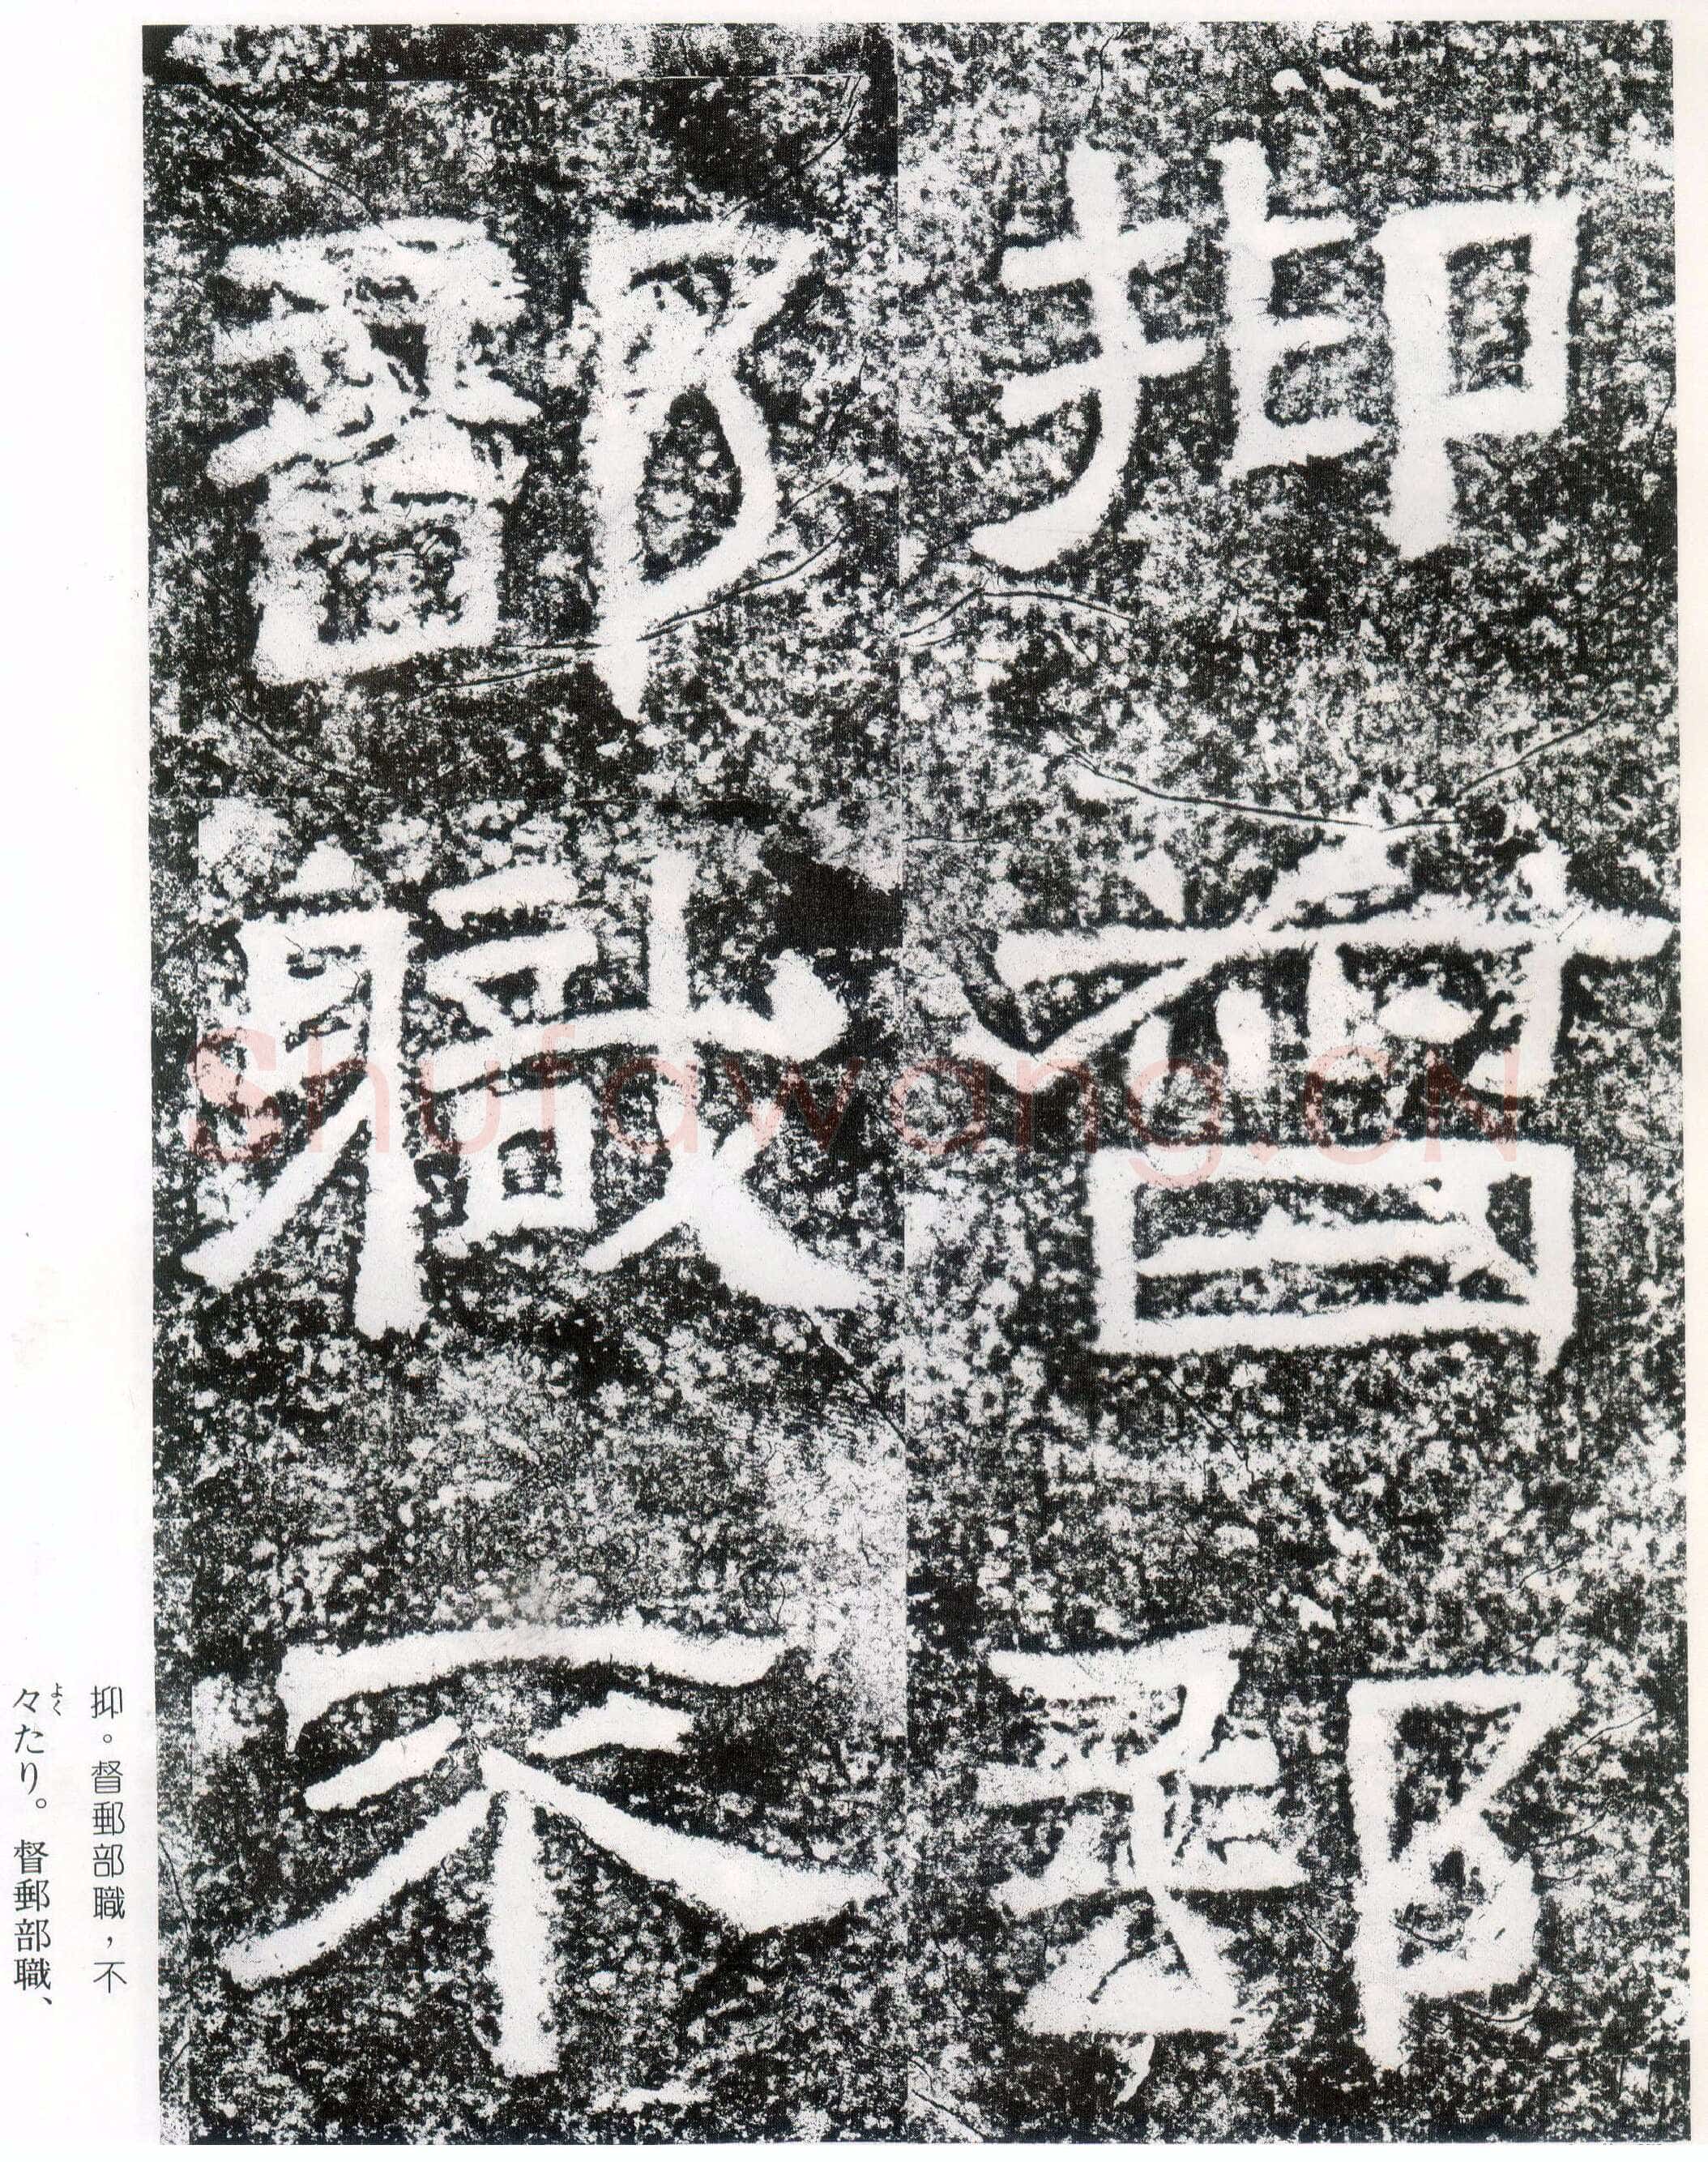 抑督郵
部職不
抑。督郵部職，不
々たり。督郵部職、
よく
shufawang.cn